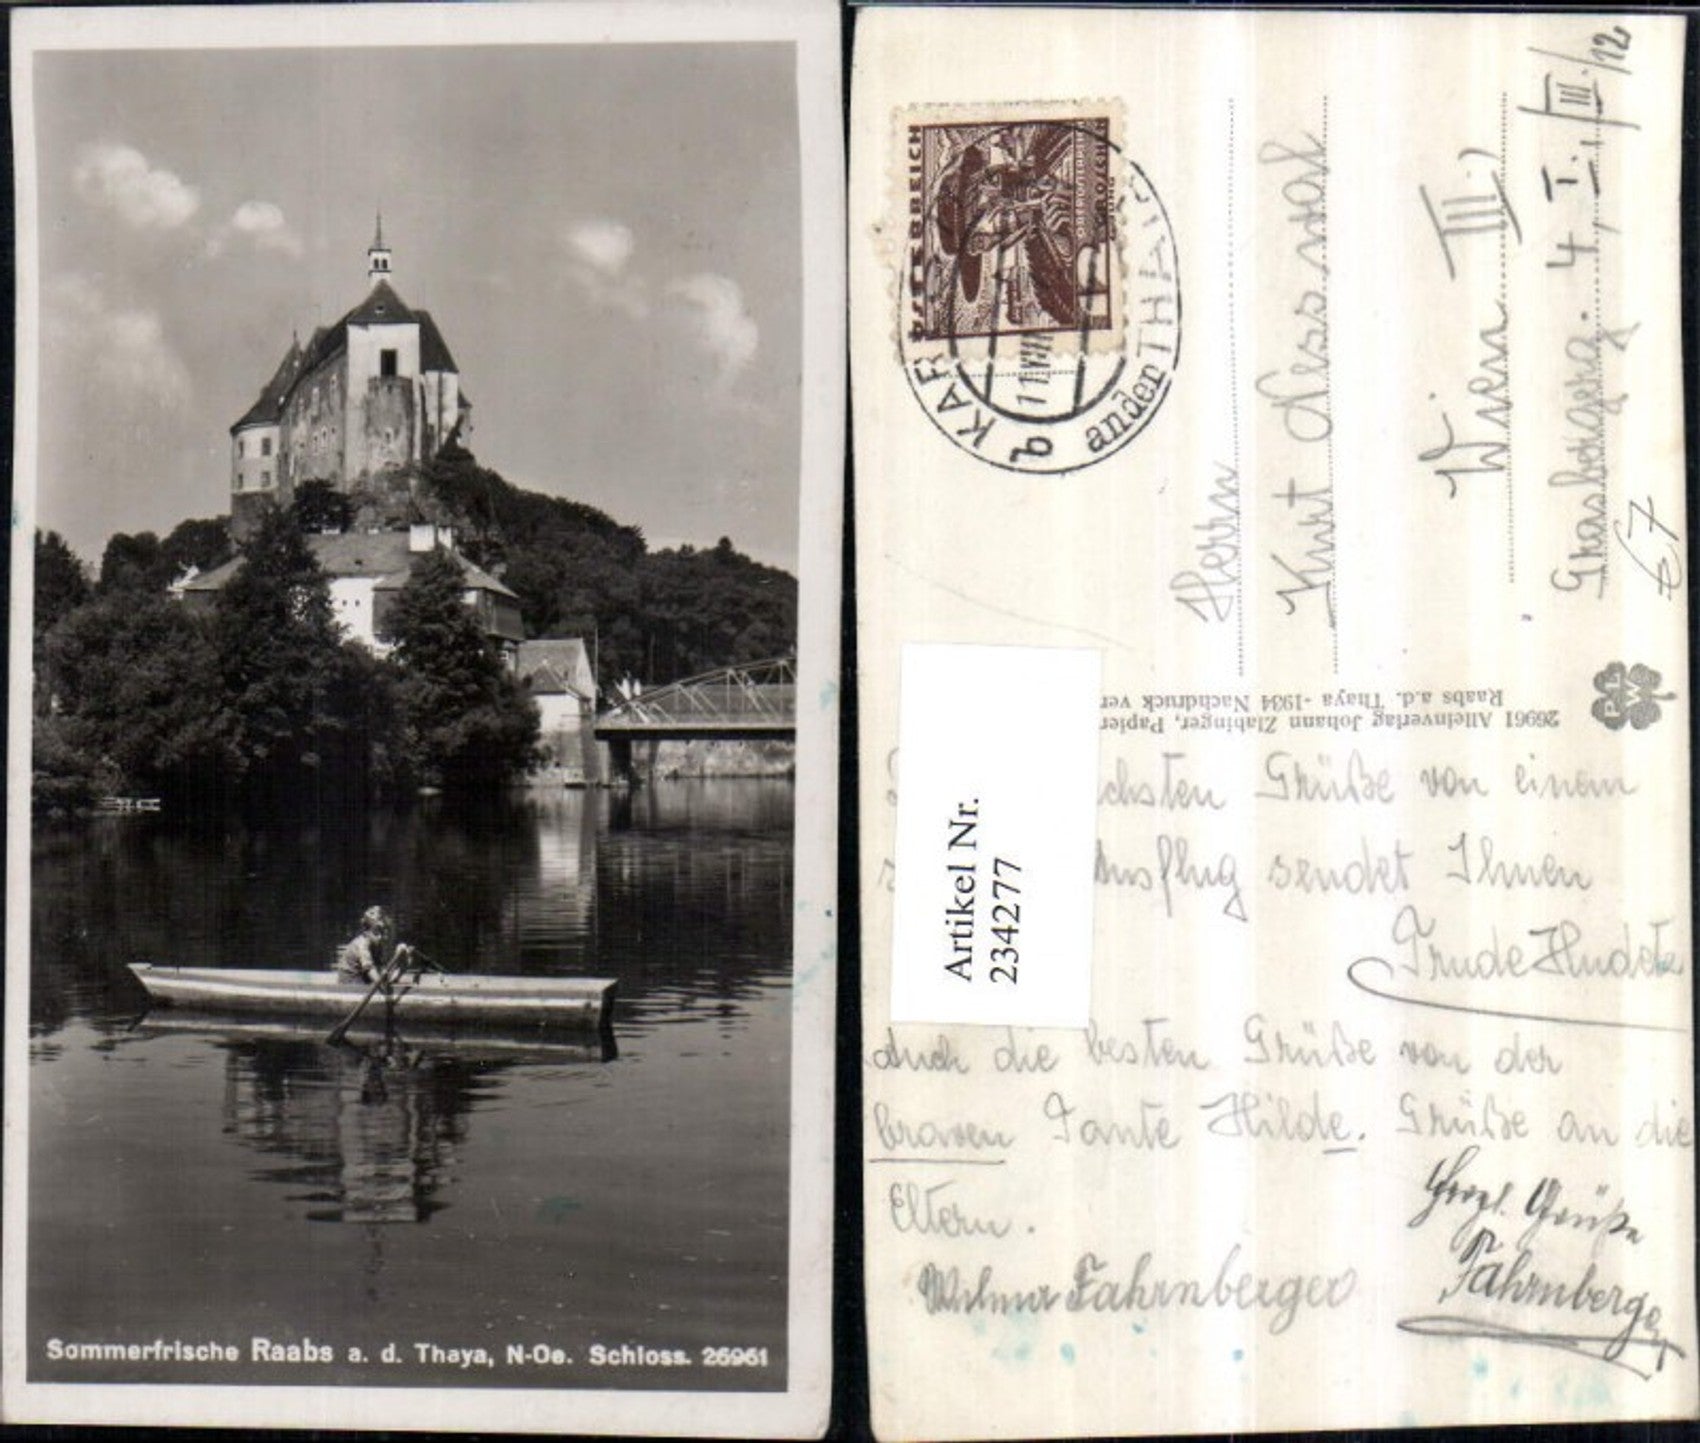 Sommerfrische Raabs a. d. Thaya, N-Oe. Schloss. 26961
ÖSTERREICH
12
GROSCHEN
b KAR
an der THAYA
11. VIII
Herrn
Kurt
Wien III.)
4. I., /III./12
€ 7
26961 Alleinverlag Johann Zlabinger, Papier
Raabs a.d. Thaya - 1934 Nachdruck ver
PAG
Artikel Nr.
234277
chsten Grüße von einem
Ausflug sendet Ihnen
Trude
auch die besten Grüße von der
braven Tante Hilde. Grüße an die
Eltern.
Herzl. Grüße
Fahrnberger
Wilma Fahrnberger